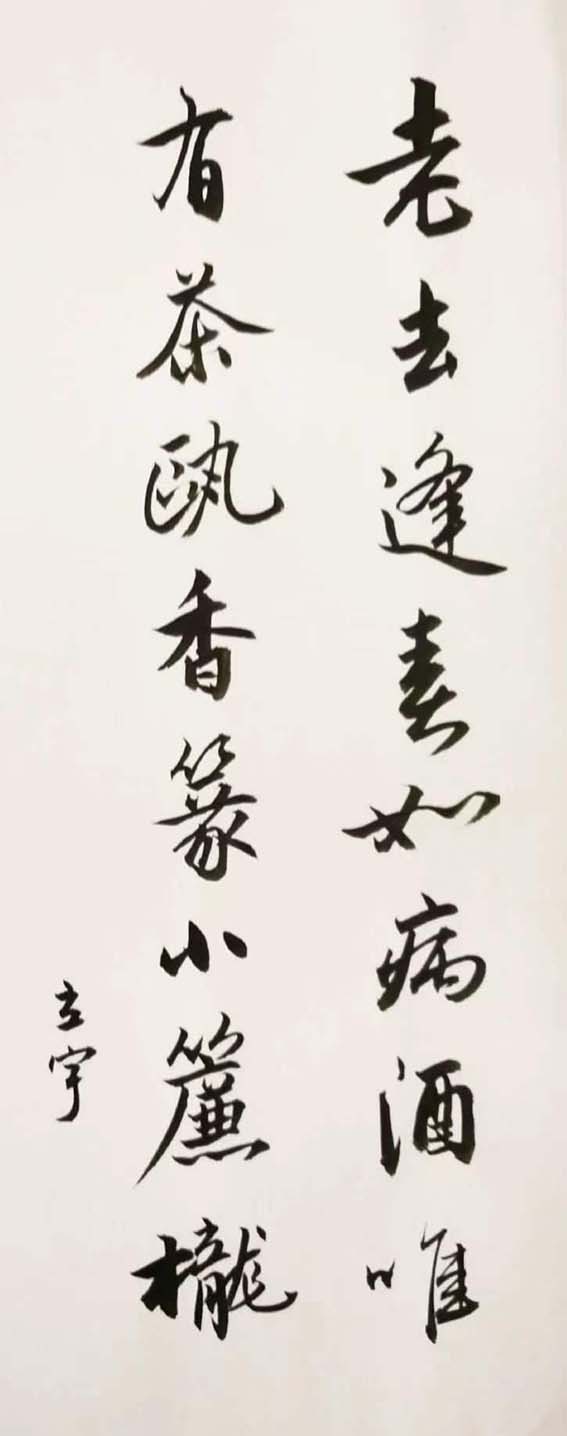 老去逢春如病酒唯
有茶甌香篆小簾櫳
立宇